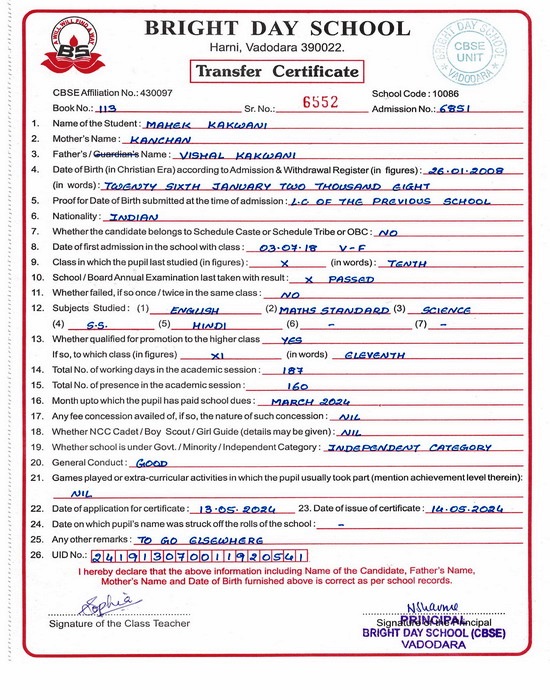 A WILL WILL FIND A WAY
BS
BRIGHT DAY SCHOOL
Harni, Vadodara 390022.
BRIGHT DAY SCHOOL
CBSE
UNIT
VADODARA
Transfer Certificate
CBSE Affiliation No.: 430097 School Code : 10086
Book No.: 113 Sr. No.: 6552 Admission No.: 6851
1. Name of the Student : MAHEK KAKWANI
2. Mother's Name : KANCHAN
3. Father's / Guardian's Name : VISHAL KAKWANI
4. Date of Birth (in Christian Era) according to Admission & Withdrawal Register (in figures) : 26.01.2008
(in words) : TWENTY SIXTH JANUARY TWO THOUSAND EIGHT
5. Proof for Date of Birth submitted at the time of admission : L.C OF THE PREVIOUS SCHOOL
6. Nationality : INDIAN
7. Whether the candidate belongs to Schedule Caste or Schedule Tribe or OBC : NO
8. Date of first admission in the school with class : 03.07.18 V-F
9. Class in which the pupil last studied (in figures) : X (in words) : TENTH
10. School / Board Annual Examination last taken with result : X PASSED
11. Whether failed, if so once / twice in the same class : NO
12. Subjects Studied : (1) ENGLISH (2) MATHS STANDARD (3) SCIENCE
(4) S.S. (5) HINDI (6) - (7) -
13. Whether qualified for promotion to the higher class YES
If so, to which class (in figures) XI (in words) ELEVENTH
14. Total No. of working days in the academic session : 187
15. Total No. of presence in the academic session : 160
16. Month upto which the pupil has paid school dues : MARCH 2024
17. Any fee concession availed of, if so, the nature of such concession : NIL
18. Whether NCC Cadet / Boy Scout / Girl Guide (details may be given) : NIL
19. Whether school is under Govt. / Minority / Independent Category : INDEPENDENT CATEGORY
20. General Conduct : GOOD
21. Games played or extra-curricular activities in which the pupil usually took part (mention achievement level therein) :
NIL
22. Date of application for certificate : 13.05.2024 23. Date of issue of certificate : 14.05.2024
24. Date on which pupil's name was struck off the rolls of the school : -
25. Any other remarks : TO GO ELSEWHERE
26. UID No.: 241913070011920541
I hereby declare that the above information including Name of the Candidate, Father's Name,
Mother's Name and Date of Birth furnished above is correct as per school records.
Sophia
Signature of the Class Teacher Signature of the Principal
PRINCIPAL
BRIGHT DAY SCHOOL (CBSE)
VADODARA